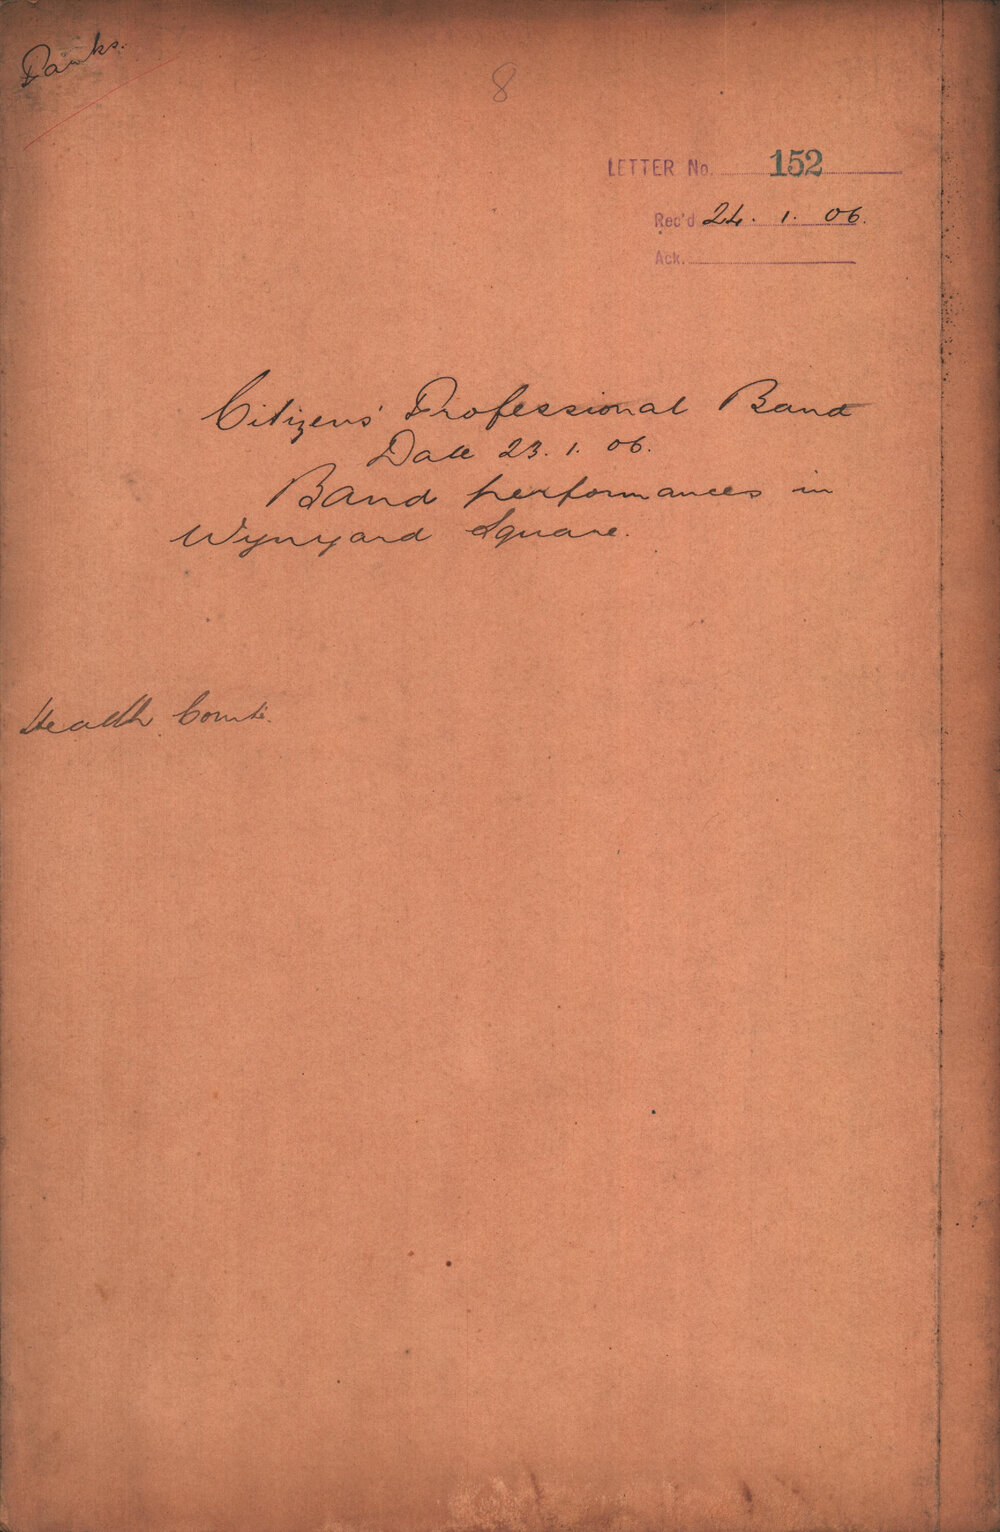 Parks.
8
LETTER No. 152
Rec'd 24. 1. 06.
Ack.
Citizens' Professional Band
Date 23. 1. 06.
Band performances in
Wynyard Square.
Health Comte.